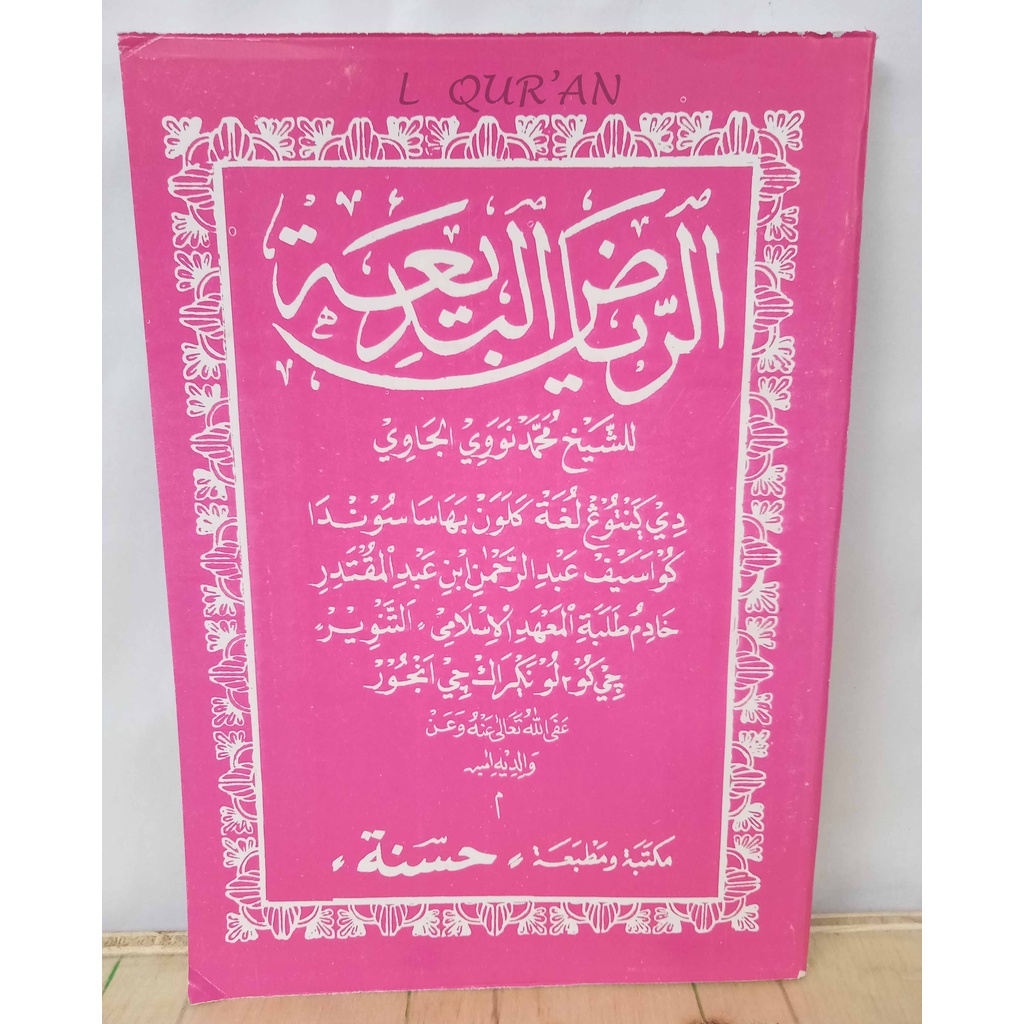 L QUR'AN
الرِّيَاضُ الْبَدِيْعَةُ
للشَّيْخ مُحَمَّد نَوَوِيْ الجَاوِيْ
دِيْ ڮَنْتُوْڠْ لُغَةْ كَلَوَنْ بَهَاسَا سُوْنْدَا
كُوْ اَسَيْف عَبْدِ الرَّحْمٰنِ ابْنِ عَبْدِ الْمُقْتَدِرِ
خَادِمُ طَلَبَةِ الْمَعْهَدِ الْاِسْلَامِى ، اَلتَّنْوِيْرْ ،
چِيْ اَنْجُوْرْ
عَفَى اللهُ تَعَالَى عَنْهُ وَعَنْ
وَالِدِيْهِ
م
مَكتَبَة وَمَطْبَعَة ، حسنة ،